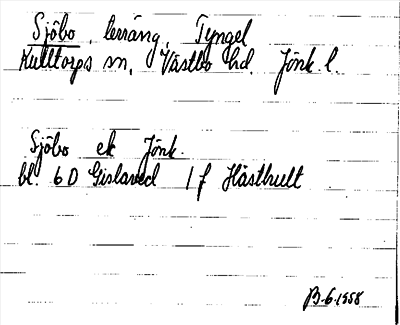 Sjöbo, terräng, Tyngel
Kulltorps sn, Västbo hd. Jönk. l.
Sjöbo ek Jönk.
bl. 6 D Gislaved 1 f Hästhult
B-6-1558